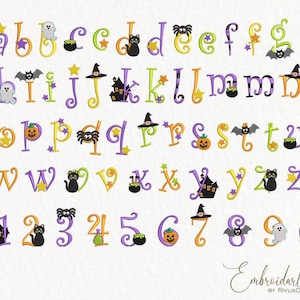 a b b c c d d e e f f g
h i i j j k k l l m m n
o p p q q r r s s t t u
v w w v v x x y y z z
1 2 3 4 5 6 7 8 9
Embroidart
BY RIVUSD